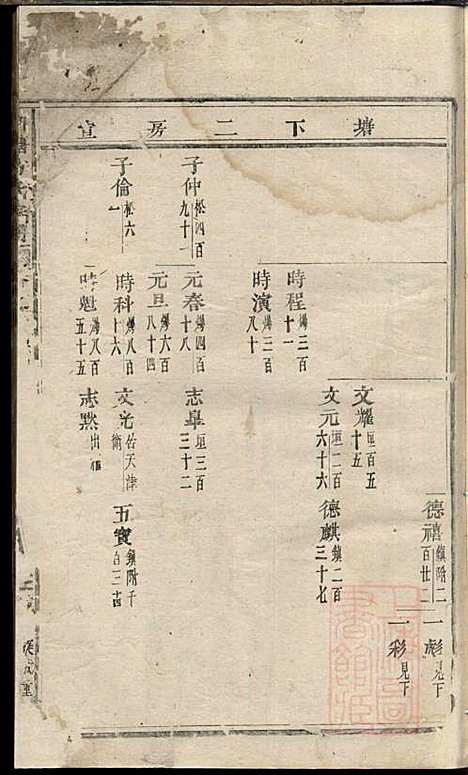 塘下二房宣
德禧鎮附二百廿二
一彪見下
一彩見下
文耀垣百五十五
文元垣二百六十六
德麒鎮二百三十七
時程爆三百十一
時演爆三百八十
子仲松四百九十一
元春爆四百十八
志皋垣三百三十二
元旦爆六百八十四
子倫松六一
時科爆八百十六
文光佑天津衛
五寶鎮附千百三十四
時魁爆八百五十五
志默出僱